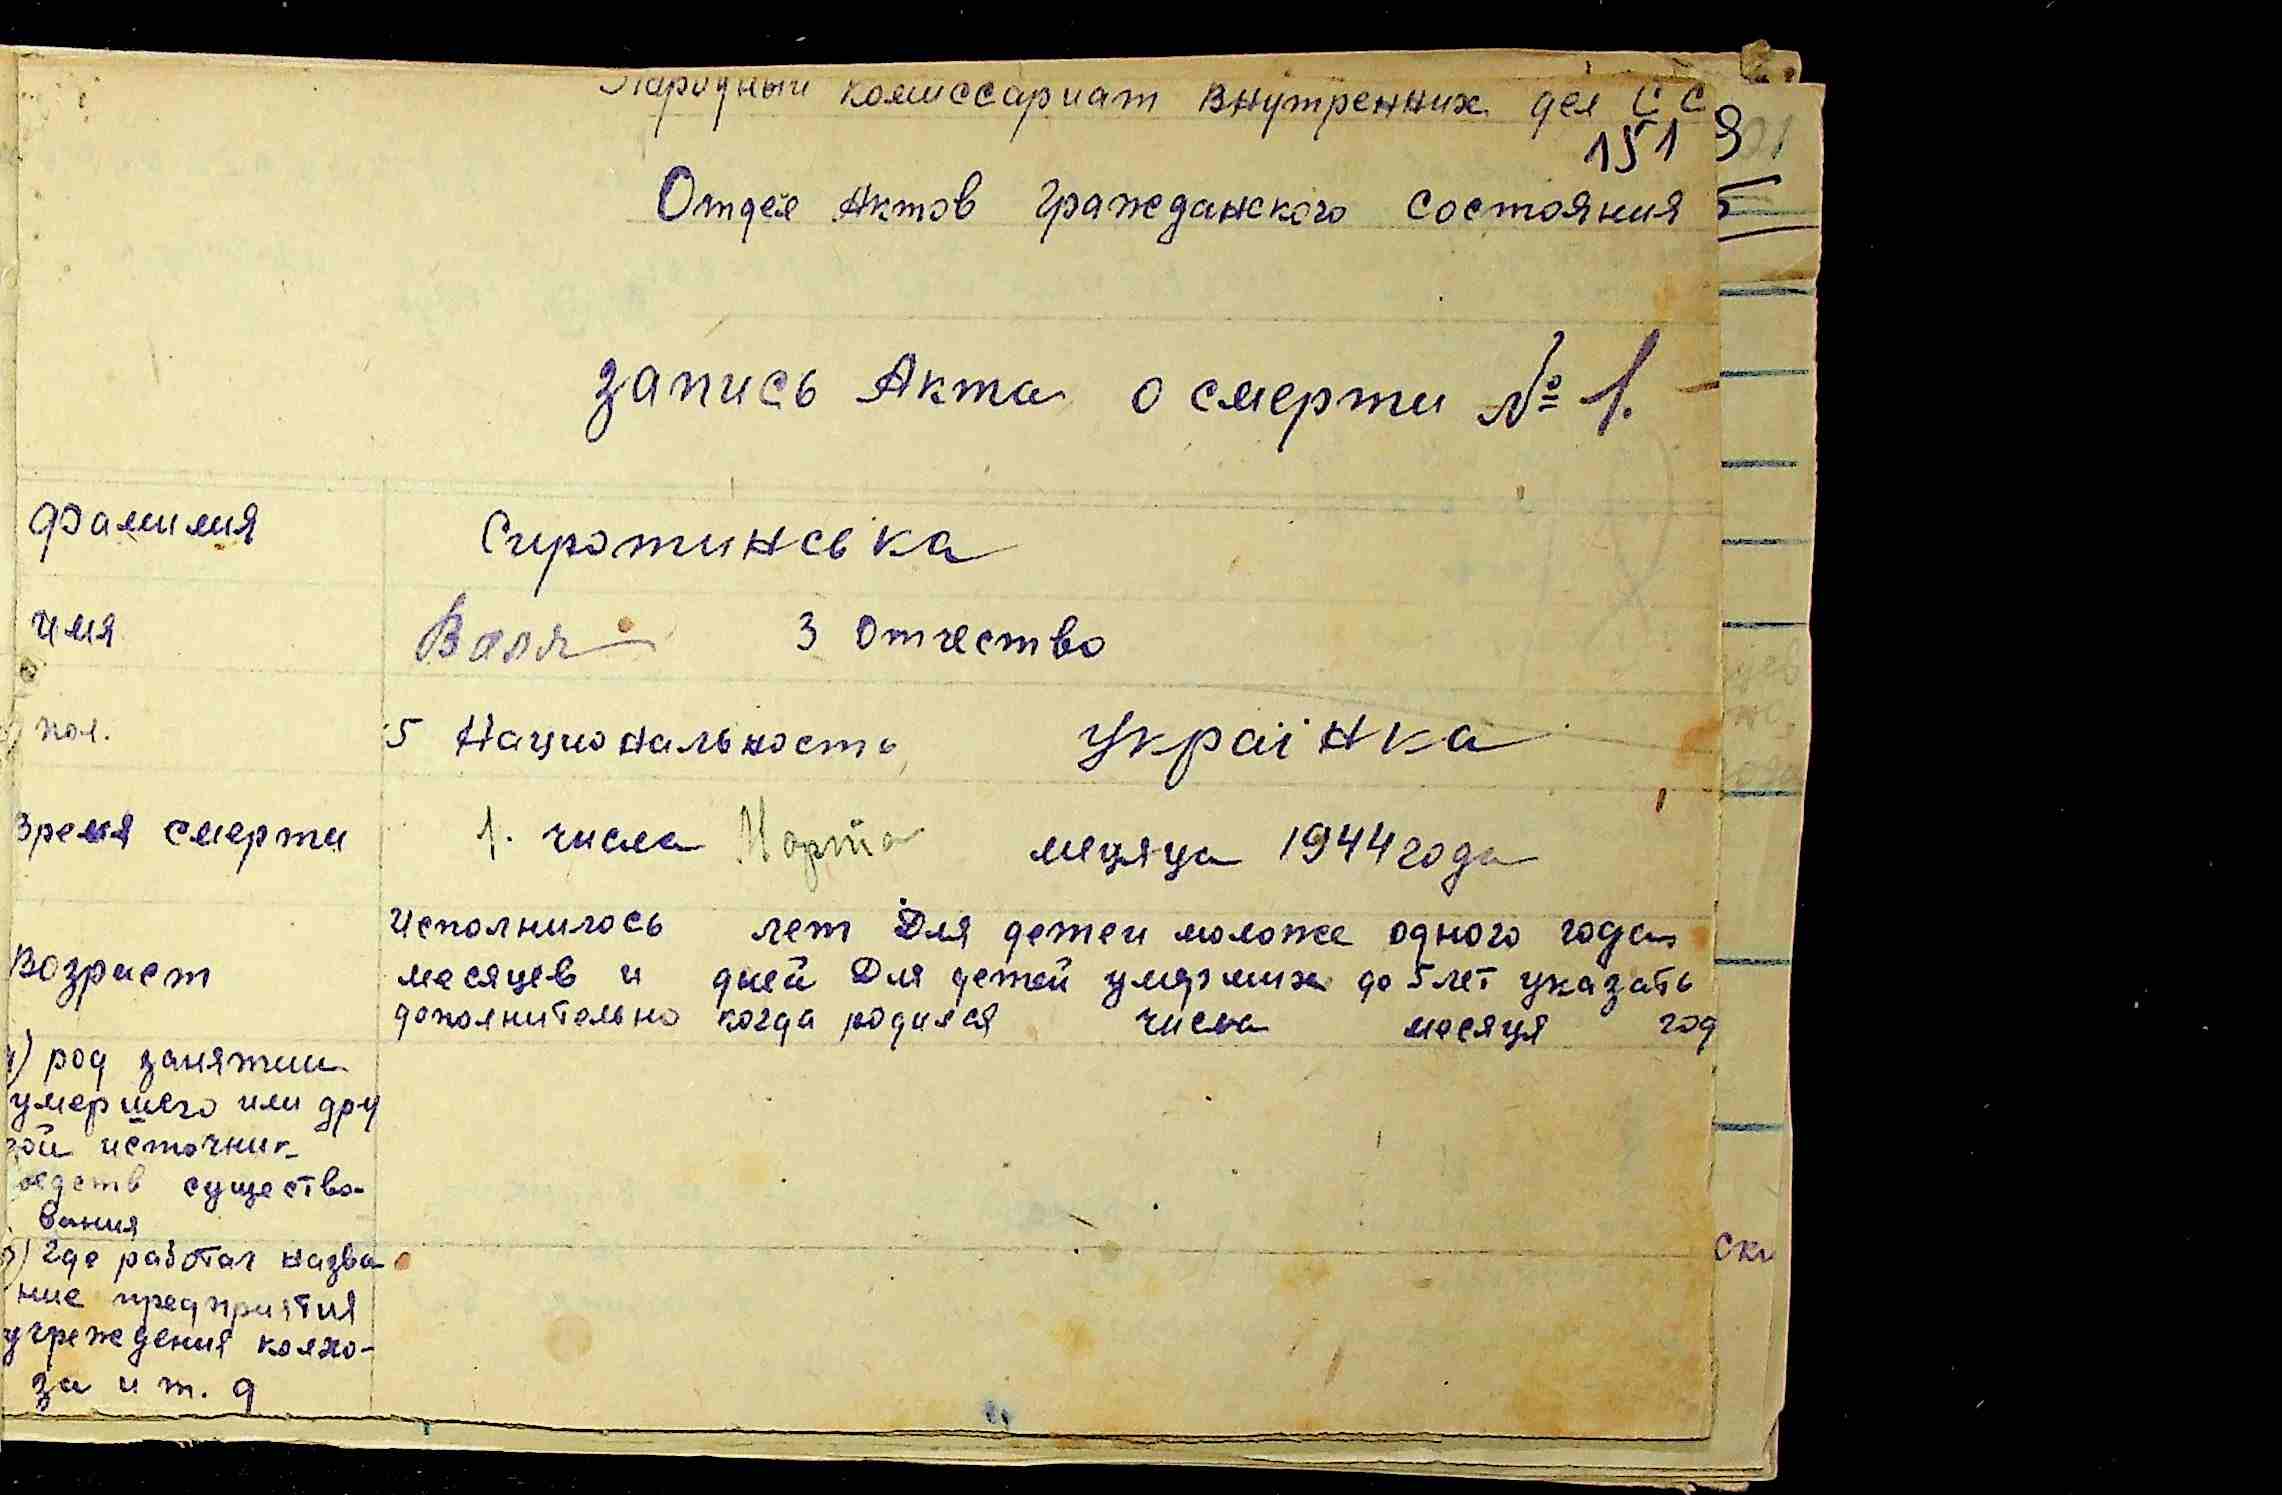 Народный комиссариат внутренних дел СС
151
Отдел Актов гражданского состояния
запись Акта о смерти № 1.
Фамилия Сиротинська
имя Валя 3 отчество
пол. 5 Национальность українка
Время смерти 1. числа Марта месяца 1944 года
Исполнилось лет Для детей моложе одного года
Возраст месяцев и дней Для детей умерших до 5 лет указать
дополнительно когда родился числа месяця год
а) род занятии
умершего или дру
гой источник
редств существо-
вания
б) где работал назва
ние предприятия
учреждения колхо-
за и т. д
ски